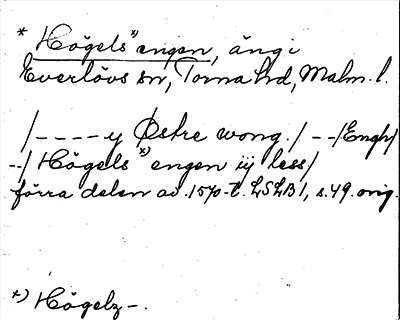 * Högels *) engen, äng i
Everlövs sn, Torna hd, Malm. l.
/ - - - - y Østre wong. / - - /Engh/
- -/ Högels *) engen iij less/
förra delen av 1570-t. LSLB 1, s. 49. orig.
*) Högelz - .